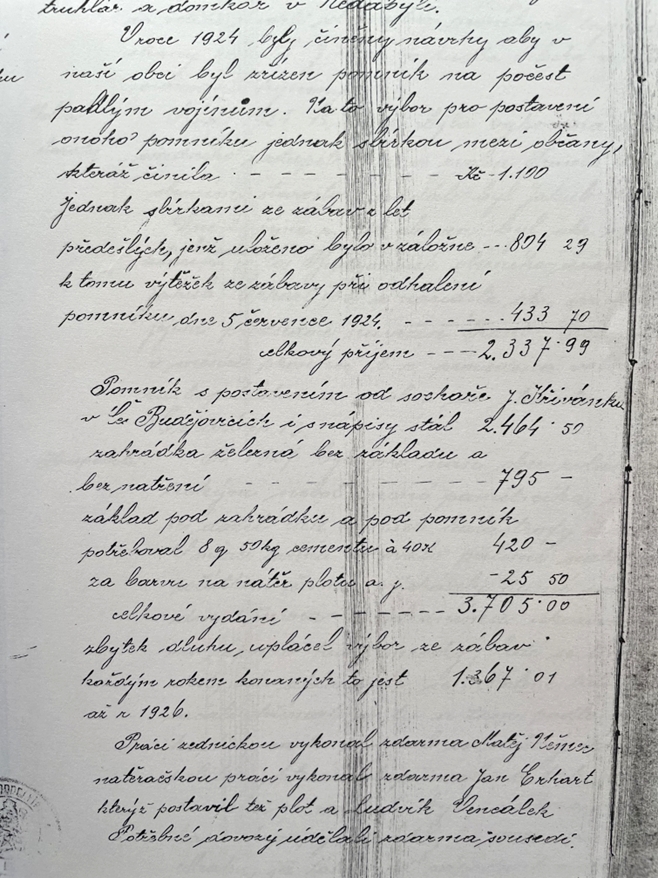 truhlář a domkář v Nedabyli.
V roce 1924 byly činěny návrhy aby v
naší obci byl zřízen pomník na počest
padlým vojínům. Na to výbor pro postavení
onoho pomníku jednak sbírkou mezi občany,
kteráž činila - - - - - - Kč 1.100
jednak sbírkami ze zábav z let
předešlých, jenž uloženo bylo v záložně - - - 804 29
k tomu výtěžek ze zábavy při odhalení
pomníku dne 5 července 1924. - - - - - 433 70
celkový příjem - - - 2.337·99
Pomník s postavením od sochaře J. Křivánka
v Čes Budějovicích i s nápisy stál 2.464· 50
zahrádka železná bez základu a
bez natření - - - - - - - 795 -
základ pod zahrádku a pod pomník
potřeboval 8 q 50 kg cementu à 40K 420 -
za barvu na nátěr plotu a. j. - 25 50
celkové vydání - - - - - 3.705·00
zbytek dluhu, uplácel výbor ze zábav
každým rokem konaných to jest 1.367· 01
až r 1926.
Práci zednickou vykonal zdarma Matěj Němec
natěračskou práci vykonal zdarma Jan Erhart
kterýž postavil též plot a Ludvík Vencálek
Potřebné dovozy udělali zdarma sousedi.